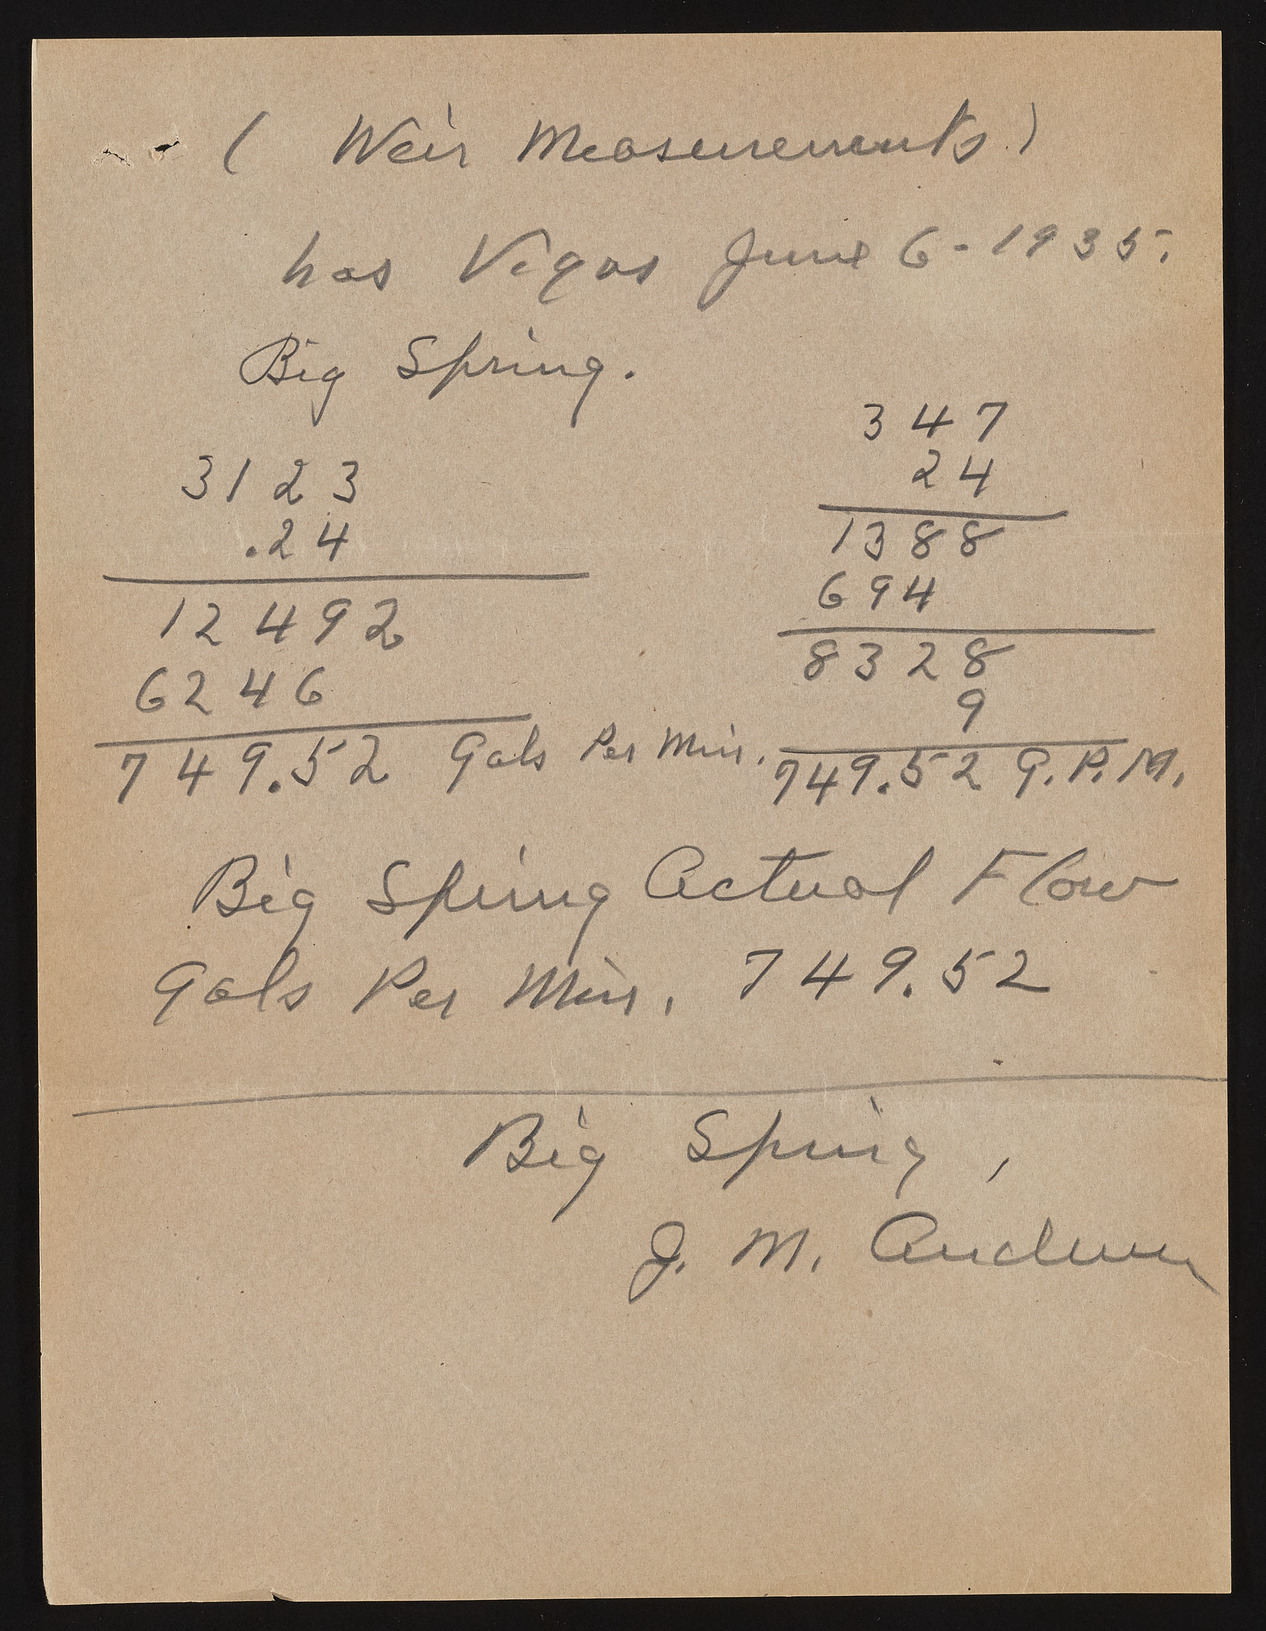 ( Weir Measurements )
Las Vegas June 6-1935.
Big Spring.
3123
.24
12492
6246
749.52 Gals Per Min.
347
24
1388
694
8328
9
749.52 G.P.M.
Big Spring Actual Flow
Gals Per Min. 749.52
Big Spring,
J. M.